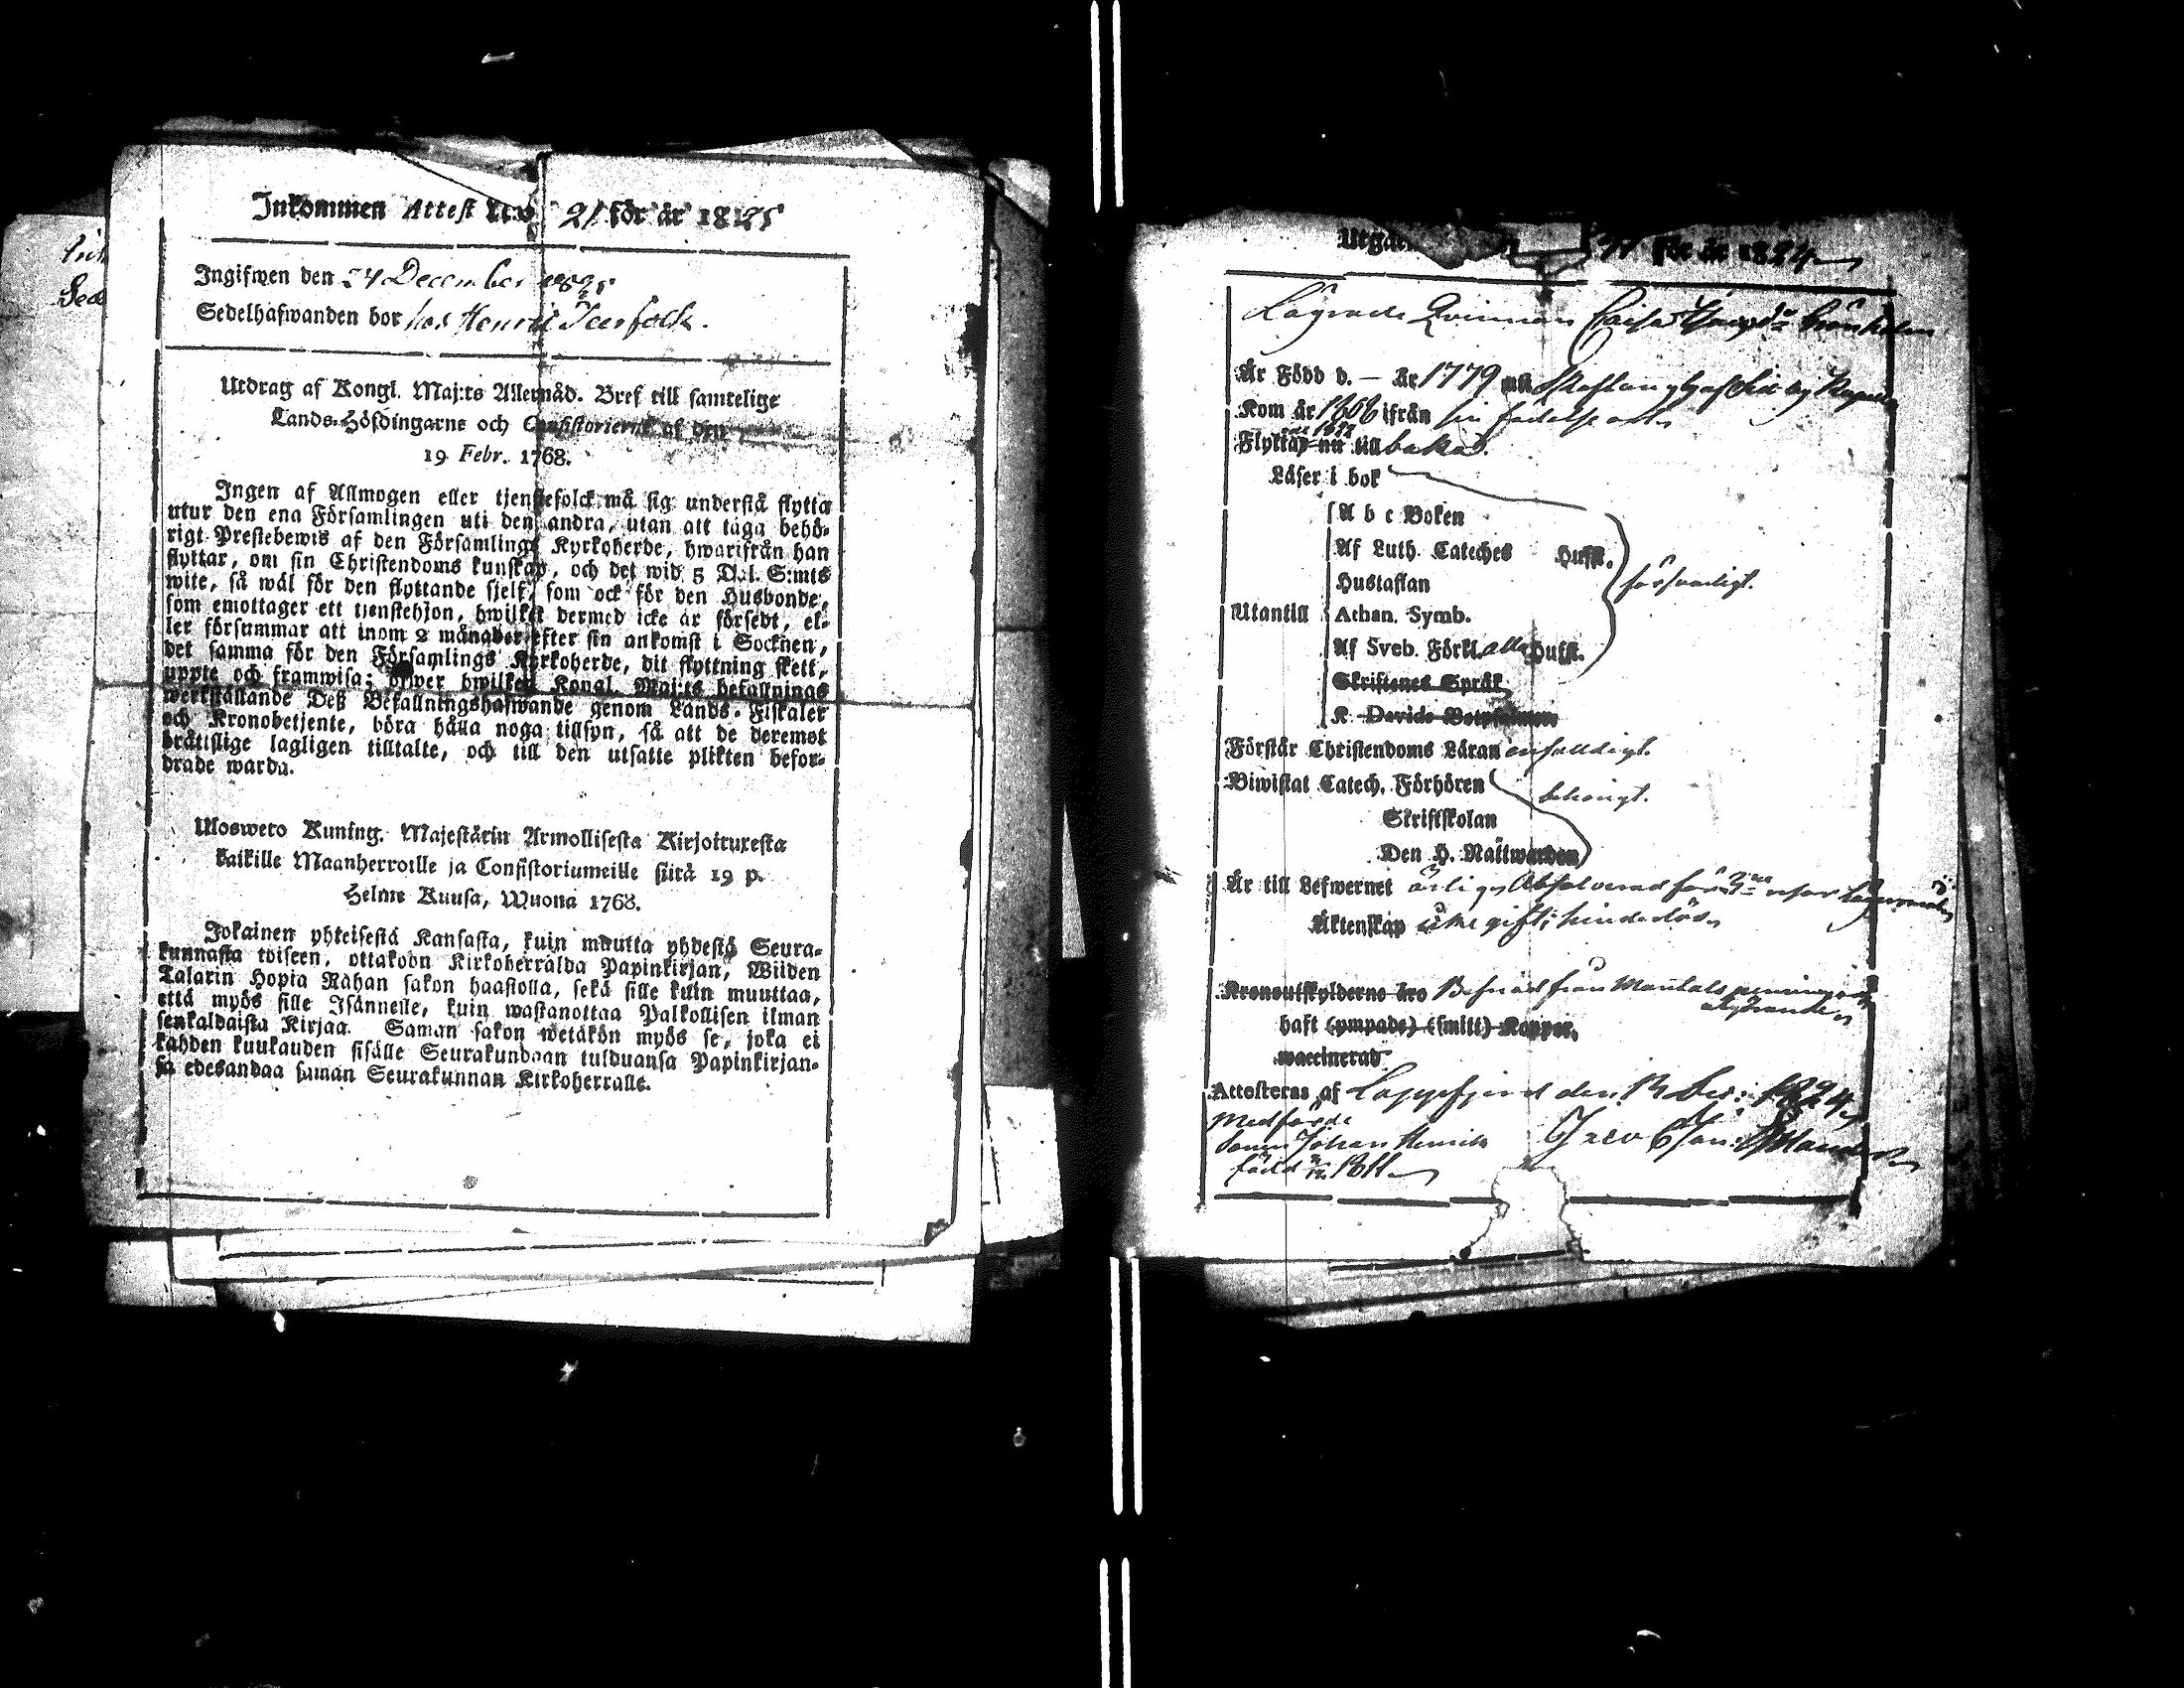 Inkommen Attest N:o 21 för år 1825
Ingifwen den 24 December 1825
Sedelhafwanden bor hos Henric Teirfolk.
Utdrag af Kongl. Maj:ts Allernåd. Bref till samtelige
Lands-Höfdingarne och Consistorierne af den
19 Febr. 1768.
Ingen af Allmogen eller tjenstefolck må sig understå flytta
utur den ena Församlingen uti den andra, utan att taga behö-
rigt Prestebewis af den Församlings Kyrkoherde, hwarifrån han
flyttar, om sin Christendoms kunskap, och det wid 5 Dal. S:mts
wite, så wäl för den flyttande sjelf, som ock för den Husbonde,
som emottager ett tjenstehjon, hwilket dermed icke är försedt, el-
ler försummar att inom 2 månader efter sin ankomst i Socknen,
det samma för den Församlings Kyrkoherde, dit flyttning skett,
uppte och framwisa; öfwer hwilken Kongl. Maj:ts befallnings
werkställande Deß Befallningshafwande genom Lands-Fiskaler
och Kronobetjente, böra hålla noga tillsyn, så att de deremot
bråttslige lagligen tilltalte, och till den utsatte plikten befor-
drade warda.
Ulosweto Kuning. Majestärin Armollisesta Kirjoituxesta
kaikille Maanherroille ja Consistoriumeille siitä 19 p.
Helme Kuusa, Wuona 1768.
Jokainen yhteisestä Kansasta, kuin muutta yhdestä Seura-
kunnasta toiseen, ottakoon Kirkoherralda Papinkirjan, Wiiden
Talarin Hopia Rahan sakon haastolla, sekä sille kuin muuttaa,
että myös sille Isännelle, kuin wastanottaa Palkollisen ilman
senkaldaista Kirjaa. Saman sakon wetäkön myös se, joka ei
kahden kuukauden sisälle Seurakundaan tulduansa Papinkirjan-
sa edesandaa saman Seurakunnan Kirkoherralle.
77 för år 1824
Lägrade Qvinnan Caisa
Är Född d. — år 1779 uti
Kom år 1808 ifrån sin födelse ort
Flyttar nu till baka.
Läser i bok
A b c Boken
Af Luth. Cateches Hufst.
Hustaflan
försvarligt.
Utantill Athan. Symb.
Af Sveb. Förkl. alla Hufst.
Skriftenes Språk
K. Davids Botpsalmer
Förstår Christendoms Läran enfaldigt.
Biwistat Catech. Förhören
behörigt.
Skriftskolan
Den H. Nattwarden
Är till Lefwernet ärlig, Absolverad för
Äktenskap icke gift; hinderlös
Kronoutskylderne äro Befriad från Mantals penningars
haft (ympade) (smitt) Koppor,
waccinerad
Attesteras af Lappfjerd den 13 Dec: 1824
Medförde
Sonen Johan Henric
född 1811